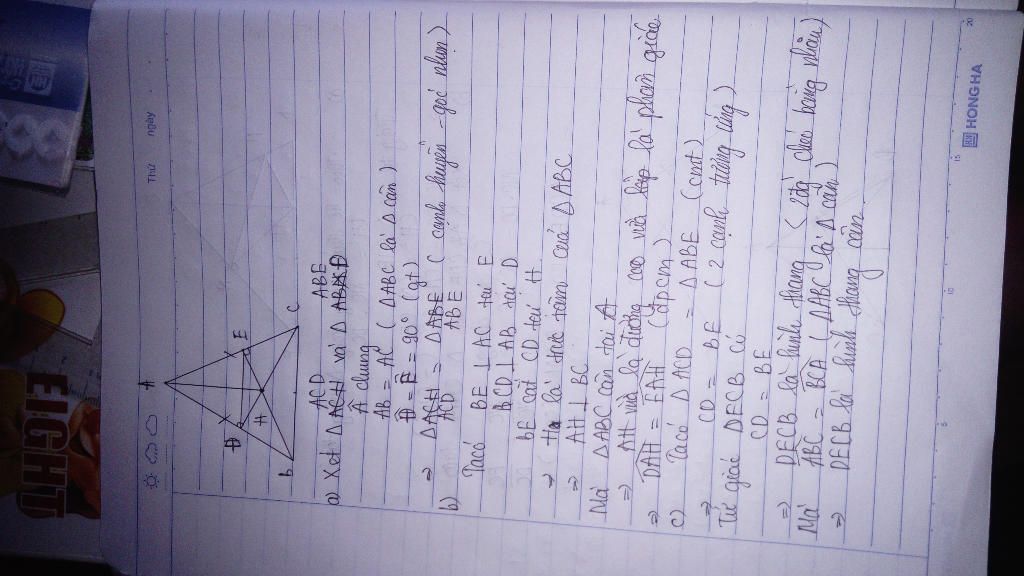 Thứ ngày
A
D E
H
B C
ACD ABE
a) Xét Δ ACH và Δ ABH D
Â chung
AB = AC ( Δ ABC là Δ cân )
D = E = 90° (gt)
⇒ Δ ACH = Δ ABE ( cạnh huyền - góc nhọn )
ACD ABE
b) Ta có BE ⊥ AC tại E
CD ⊥ AB tại D
BE cắt CD tại H
⇒ H là trực tâm của Δ ABC
⇒ AH ⊥ BC
Mà ΔABC cân tại A
⇒ AH vừa là đường cao vừa là phân giác
⇒ DAH = EAH (đpcm)
c) Ta có Δ ACD = Δ ABE (cmt)
⇒ CD = BE ( 2 cạnh tương ứng )
Tứ giác DECB có
CD = BE
⇒ DECB là hình thang ( 2 đg chéo bằng nhau )
Mà ABC = BCA ( Δ ABC là Δ cân )
⇒ DECB là hình thang cân
HONG HA
5
10
15
20
EIGHT